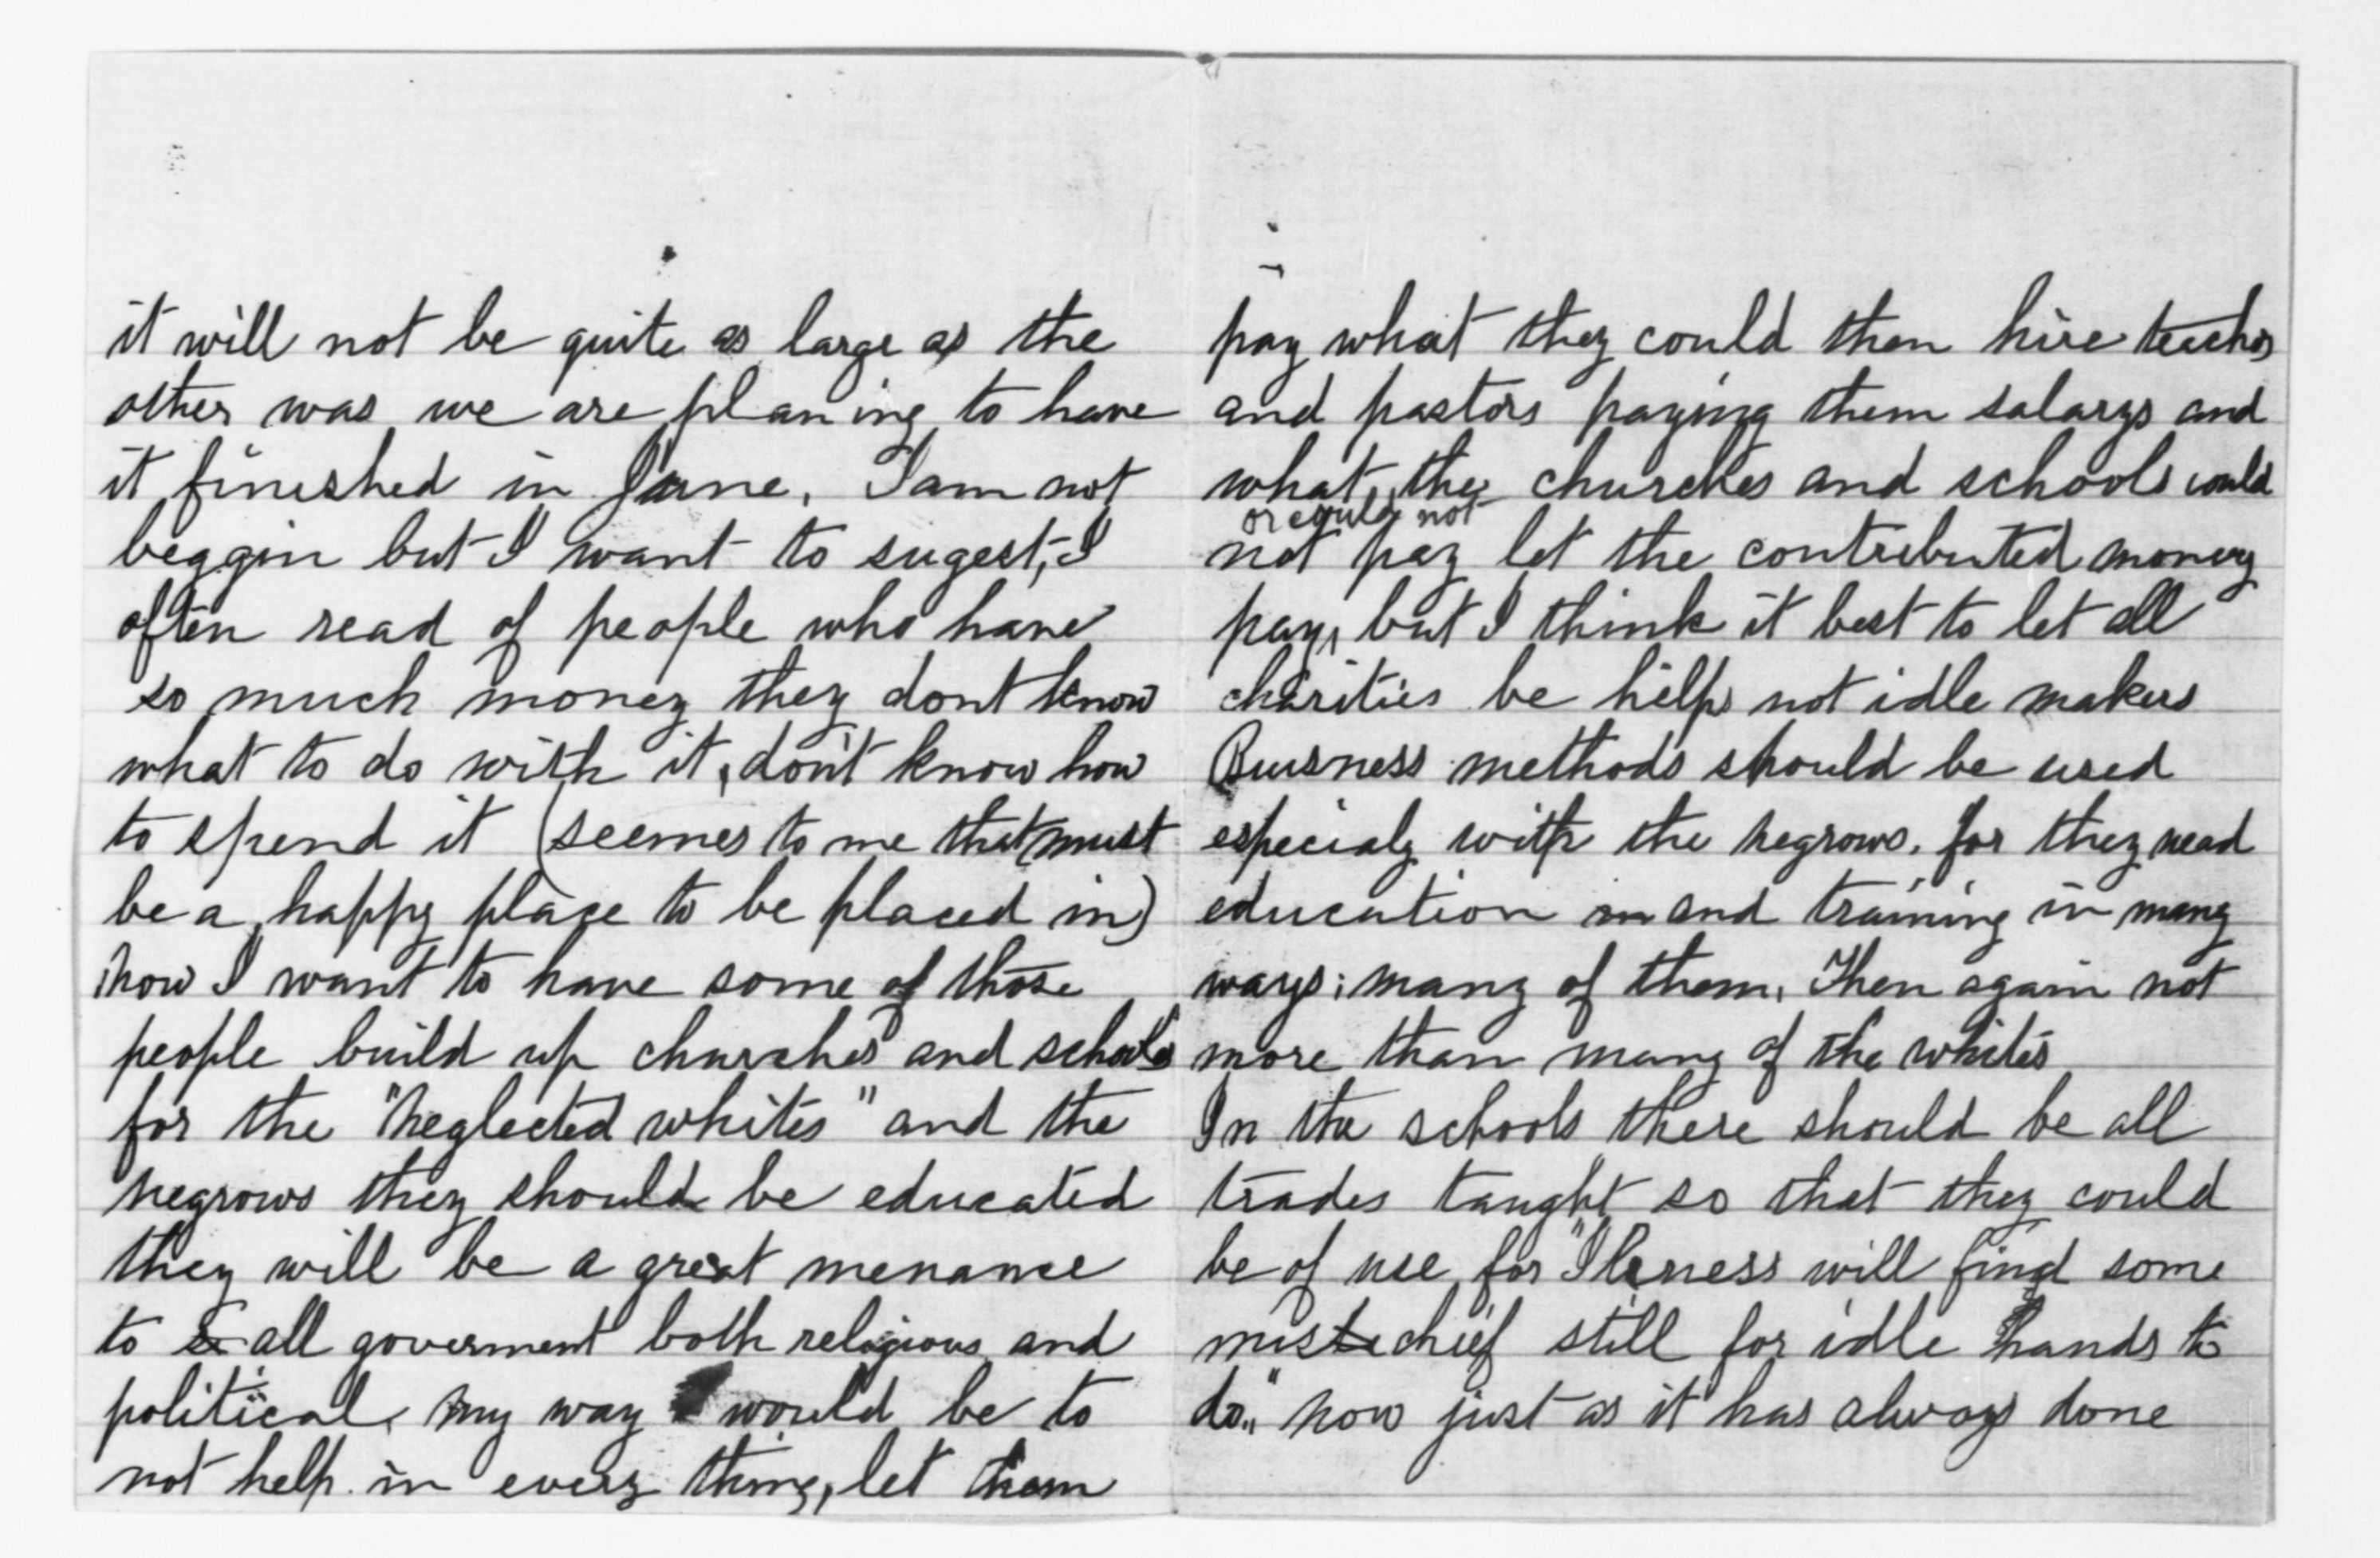 it will not be quite as large as the
other was we are planing to have
it finished in June. I am not
beggin but I want to sugest, I
often read of people who have
so much money they dont know
what to do with it, don't know how
to spend it (seemes to me that must
be a happy place to be placed in)
now I want to have some of those
people build up churches and schools
for the "neglected whites" and the
negrows they should be educated
they will be a great menance
to all goverment both religious and
political. my way would be to
not help in every thing, let them
pay what they could then hire
and pastors paying them salarys and
what the churches and schools would
or could not
not pay let the contributed money
pay, but I think it best to let all
charities be helps not idle makers
Buisness methods should be used
especialy with the negrows. for they nead
education and training in many
ways; many of them. Then again not
more than many of the whites
In the schools there should be all
trades taught so that they could
be of use for will find some
mischief still for idle hands to
do." now just as it has always done